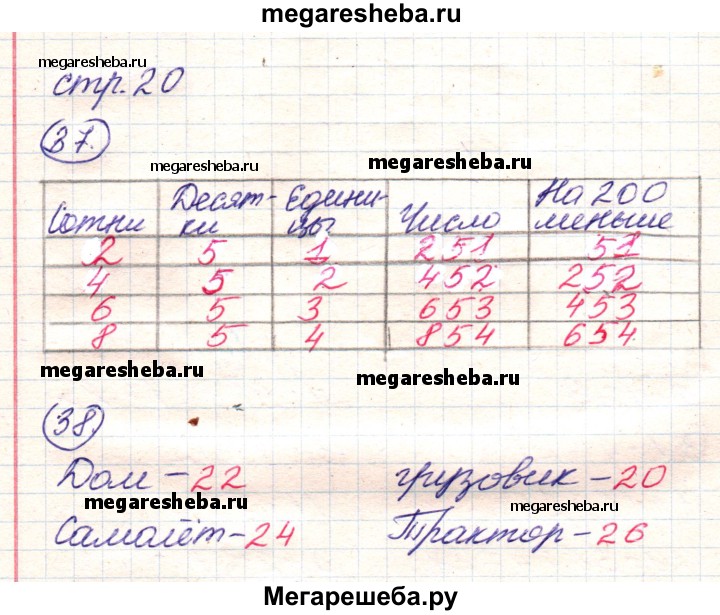 megaresheba.ru
megaresheba.ru
стр. 20
37.
megaresheba.ru
megaresheba.ru
Сотни | Десят-ки | Едини-цы | Число | На 200 меньше
2 | 5 | 1 | 251 | 51
4 | 5 | 2 | 452 | 252
6 | 5 | 3 | 653 | 453
8 | 5 | 4 | 854 | 654
megaresheba.ru
megaresheba.ru
38.
Дом – 22 грузовик – 20
megaresheba.ru
megaresheba.ru
Самолёт – 24 Трактор – 26
Мегарешеба.ру